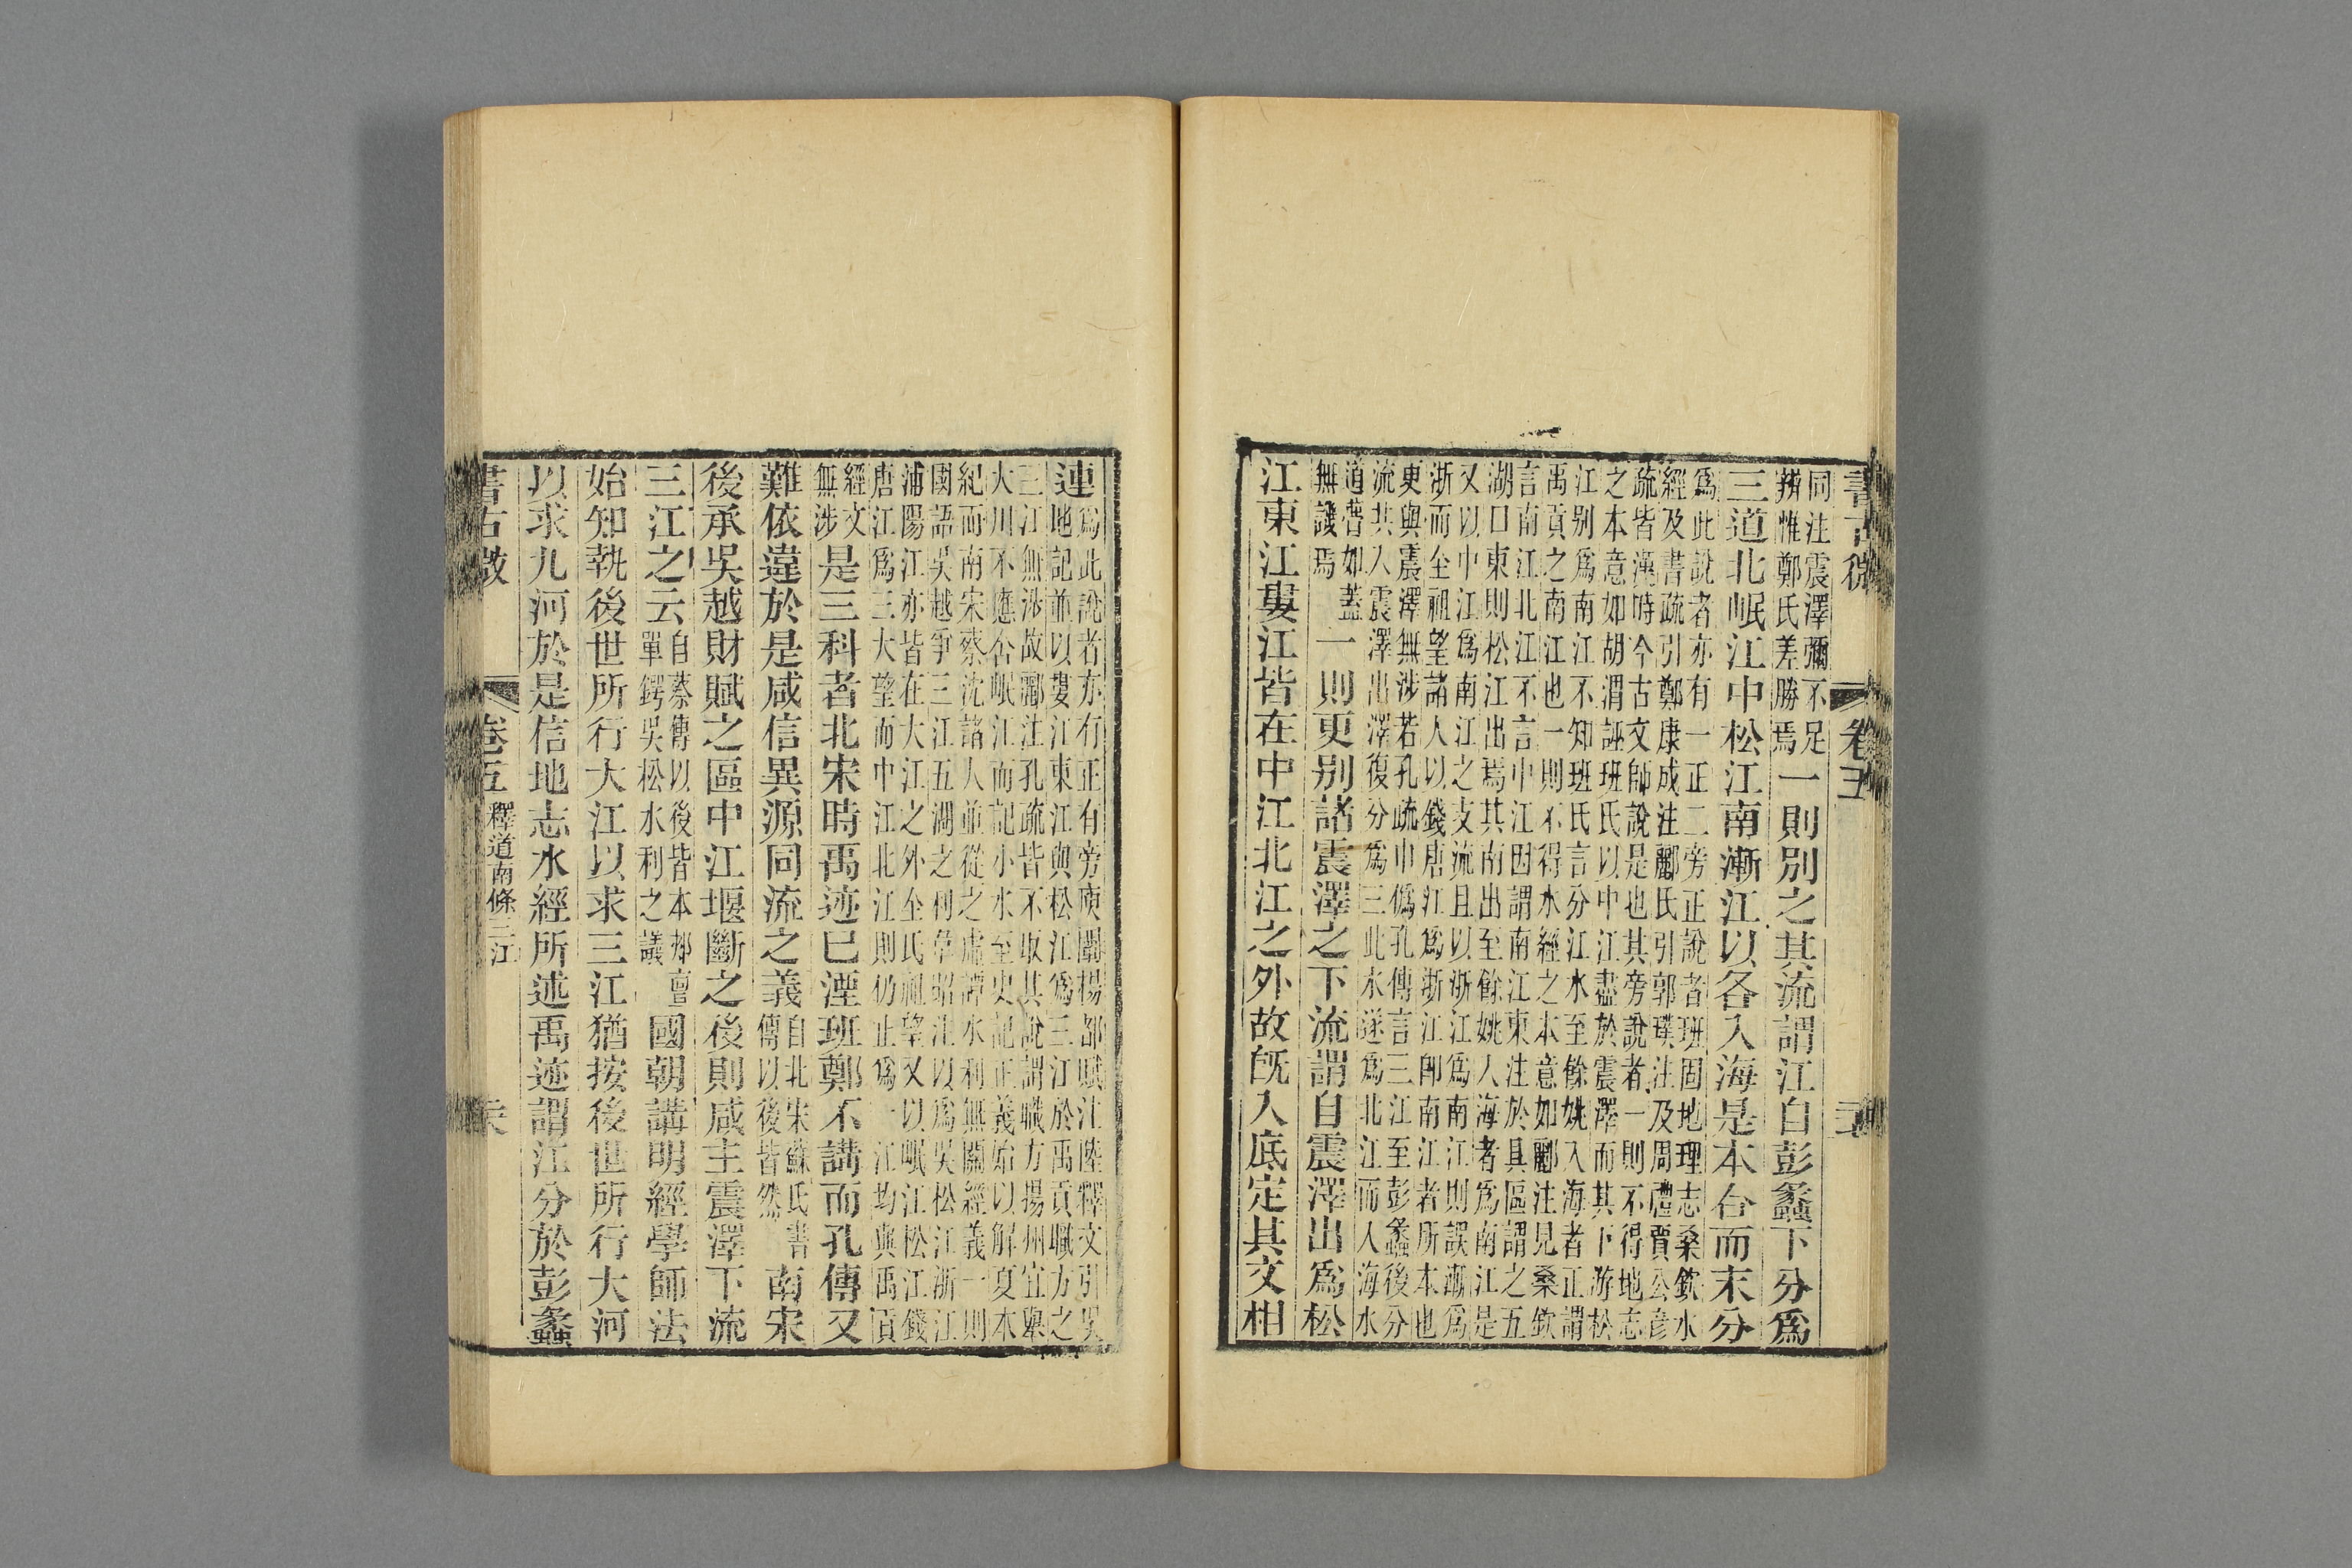 書古微 卷五
同注震澤彌不足
辨惟鄭氏差勝焉
一則別之其流謂江自彭蠡下分爲
三道北岷江中松江南漸江以各入海是本合而末分
爲此說者亦有一正二旁正說者班固地理志桑欽水
經及書疏引鄭康成注酈氏引郭璞注及周禮賈公彥
疏皆漢時今古文師說是也其旁說者一則不得地志
之本意如胡渭誣班氏以中江盡於震澤而其下游松
江别爲南江不知班氏言分江水至餘姚入海者正謂
禹貢之南江也一則不得水經之本意如酈注見桑欽
言南江北江不言中江因謂南江東注於具區謂之五
湖口東則松江出焉其南出至餘姚人海者爲南江是
又以中江爲南江之支流且以浙江爲南江則誤漸爲
浙而全祖望諸人以錢唐江爲浙江卽南江者所本也
更與震澤無涉若孔疏申僞孔傳言三江至彭蠡後分
流共入震澤出澤復分爲三此水遂爲北江而入海水
道瞢如蓋
無譏焉
一則更别諸震澤之下流謂自震澤出爲松
江東江婁江皆在中江北江之外故旣入底定其文相
連
爲此說者亦有正有旁庾闡揚都賦注陸釋文引吳
地記並以婁江東江與松江爲三江於禹貢職方之
三江無涉故酈注孔疏皆不取其說謂職方揚州宜舉
大川不應合岷江而記小水至史記正義始以解夏本
紀而南宋蔡沈諸人並從之虞譚水利無關經義一則
國語吳越爭三江五湖之利韋昭注以爲吳松江浙江
浦陽江亦皆在大江之外全氏祖望又以岷江松江錢
唐江爲三大望而中江北江則仍止爲一江均與禹貢
經文
無涉
是三科者北宋時禹迹已湮班鄭不講而孔傳又
難依違於是咸信異源同流之義
自北宋蘇氏書
傳以後皆然
南宋
後承吳越財賦之區中江堰斷之後則咸主震澤下流
三江之云
自蔡傳以後皆本郟亶
單鍔吳松水利之議
國朝講明經學師法
始知執後世所行大江以求三江猶按後世所行大河
以求九河於是信地志水經所述禹迹謂江分於彭蠡
書古微 卷五 釋道南條三江